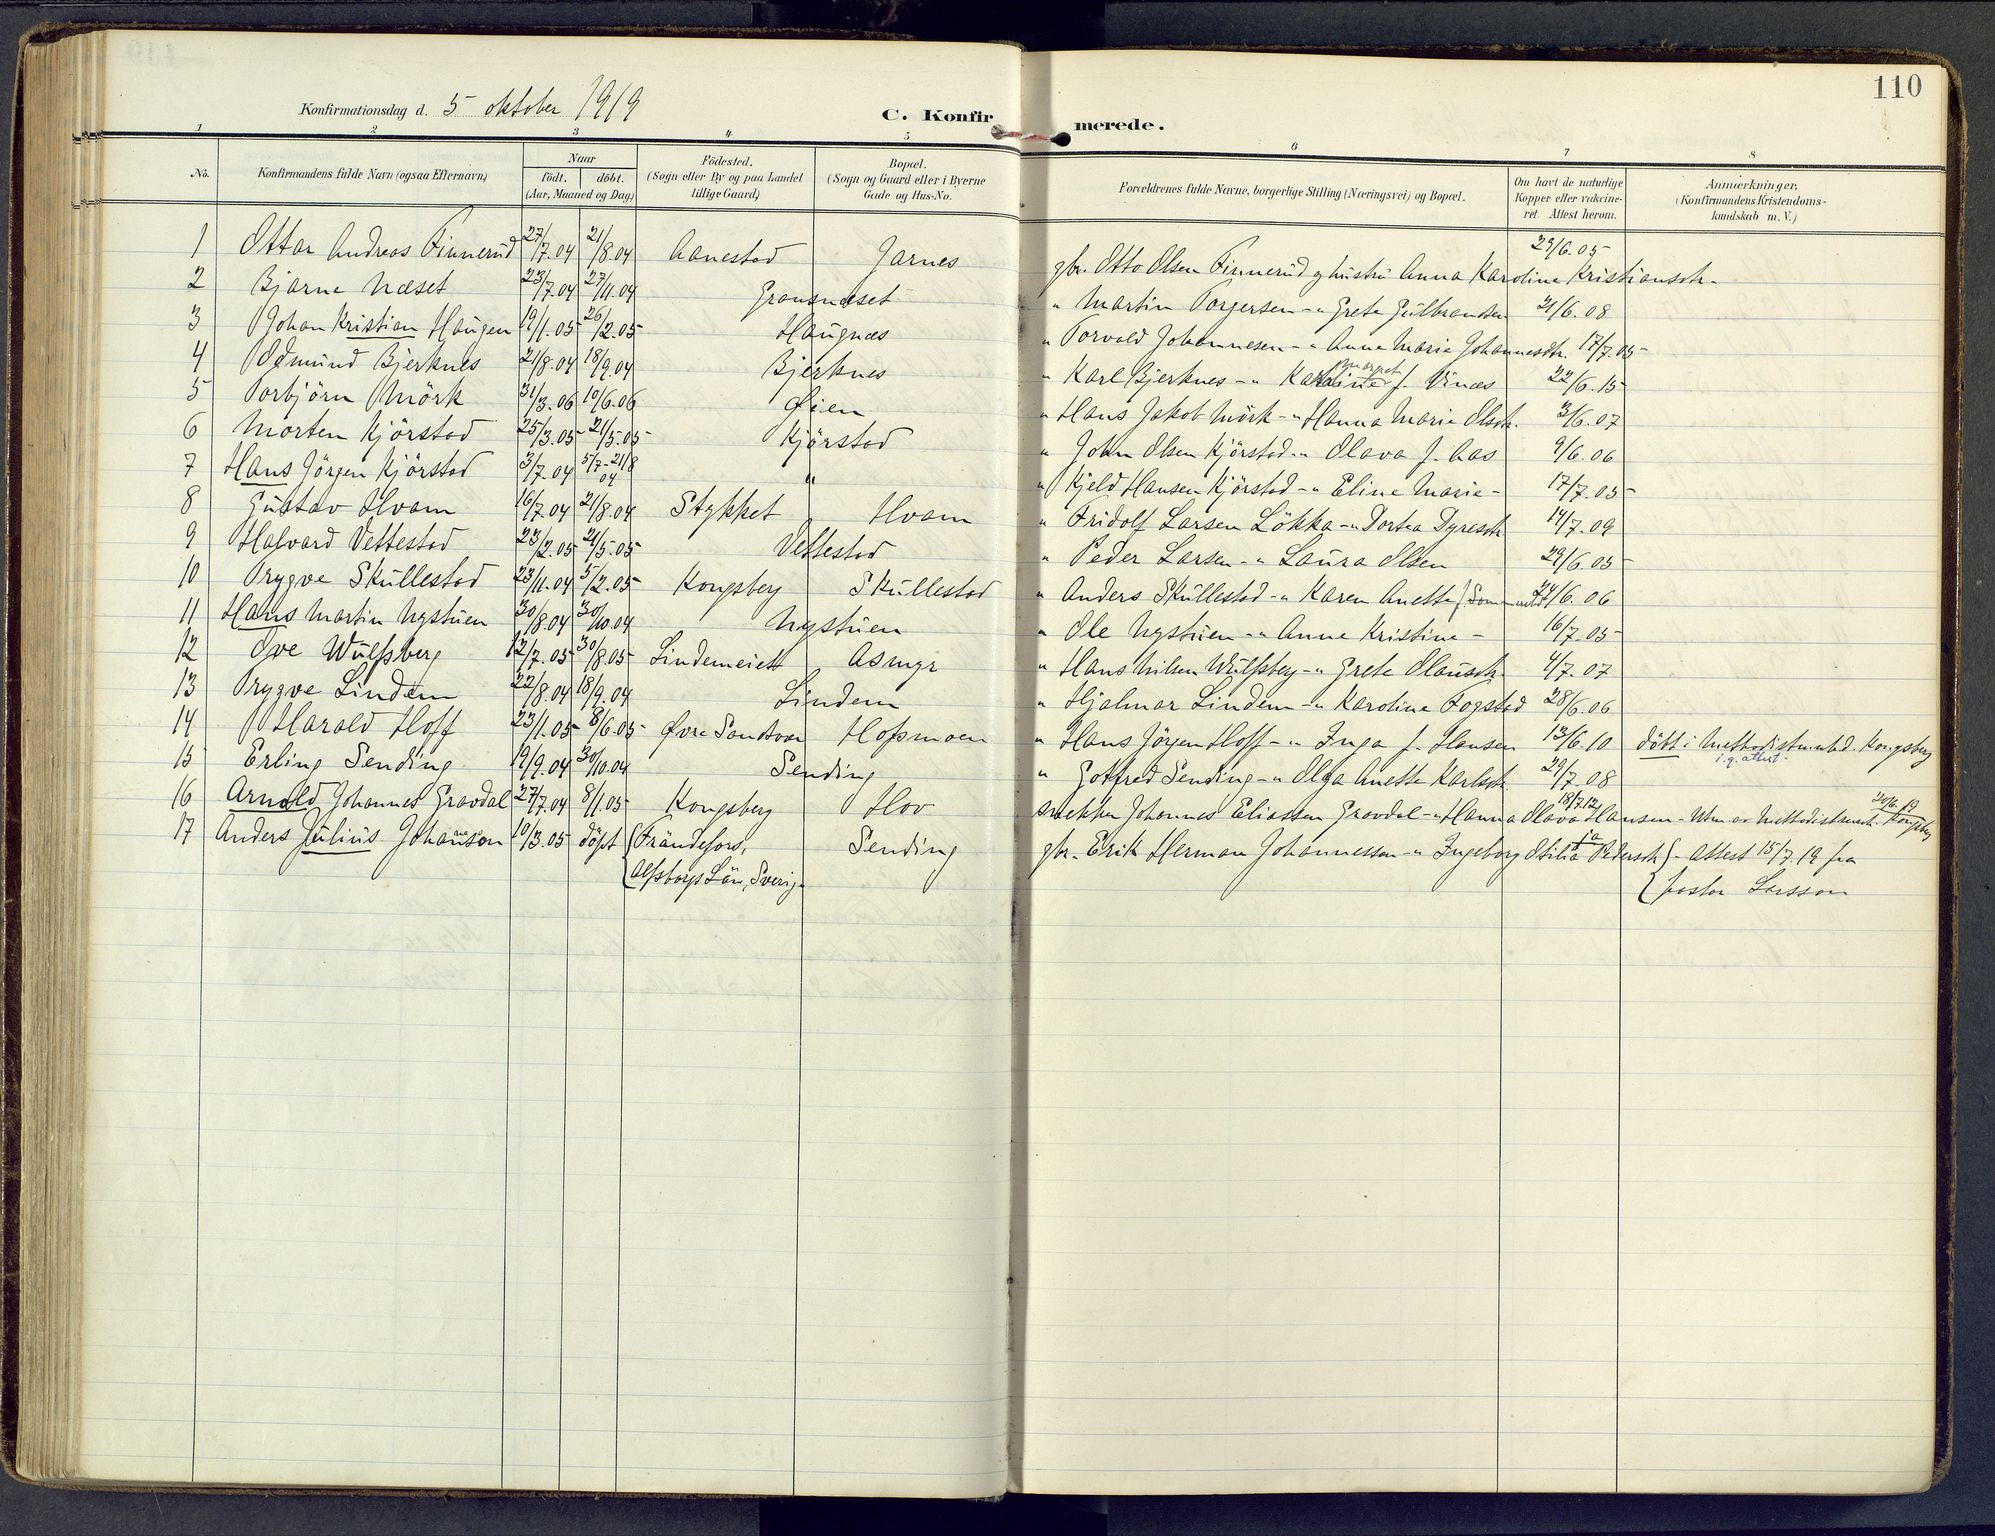 110
Konfirmationsdag d. 5 oktober 1919
C. Konfirmerede.
1 2 3 4 5 6 7 8
No. Konfirmandens fulde Navn (ogsaa Efternavn) Naar født. døbt. (Aar, Maaned og Dag) Fødested. (Sogn eller By og paa Landet tillige Gaard) Bopæl. (Sogn og Gaard eller i Byerne Gade og Hus-No. Forældrenes fulde Navne, borgerlige Stilling (Næringsvei) og Bopæl. Om havt de naturlige Kopper eller vakcineret. Attest herom. Anmærkninger, (Konfirmandens Kristendomskundskab m. V.)
1 Ottar Andreas Finnerud 27/7.04 21/8.04 Aanestad Jarnes gbr. Otto Olsen Finnerud og hustru Anna Karoline Kristiansdtr. 29/6.05
2 Bjarne Næset 23/7.04 27/11.04 Gransnæset " Martin Torgersen - " Grete Gulbrandsen 21/6.08
3 Johan Kristian Haugen 19/1.05 26/2.05 Haugnæs " Torvald Johannesen - " Anne Marie Johannesdtr. 17/7.05
4 Edmund Bjerknes 21/8.04 18/9.04 Bjerknes " Karl Bjerknes - " f. Vinæs 22/6.15
5 Torbjörn Mörk 31/3.06 10/6.06 Øien " Hans Jakob Mörk - " Hanna Marie Olsdtr. 3/6.07
6 Morten Kjörstad 25/3.05 21/5.05 Kjörstad " John Olsen Kjörstad - " Olava f. Aas 9/6.06
7 Hans Jörgen Kjörstad 3/7.04 5/7-21/8 04 " " Kjeld Hansen Kjörstad - " Eline Marie - 17/7.05
8 Gustav Hvam 16/7.04 21/8.04 Stykket Hvam " Fridolf Larsen Lökka - " Dortea Dyresdtr. 14/7.09
9 Halvard Vettestad 23/2.05 21/5.05 Vettestad " Peder Larsen - " Laura Olsen 29/6.05
10 Trygve Skullestad 23/11.04 5/2.05 Kongsberg Skullestad " Anders Skullestad - " Karen Anette 24/6.06
11 Hans Martin Nystuen 30/8.04 30/10.04 Nystuen " Ole Nystuen - " Anne Kristine - 16/7.05
12 Ove Wulfsberg 12/7.05 30/8.05 Lindemeiett Asmyr " Hans Nilsen Wulfsberg - " Grete Olausdtr. 4/7.07
13 Trygve Lindem 22/8.04 18/9.04 Lindem " Hjalmar Lindem - " Karoline Fogstad 28/6.06
14 Harald Hoff 23/1.05 8/6.05 Øvre Sandsvær Hofsmoen " Hans Jörgen Hoff - " Inga f. Hansen 13/6.10 döbt i Methodistmhd. Kongsberg
i.g. attest.
15 Erling Sending 19/9.04 30/10.04 Sending " Gotfred Sending - " Olga Anette Karlsdtr. 29/7.08
16 Arnold Johannes Gravdal 27/7.04 8/1.05 Kongsberg Hov snekker Johannes Eliassen Gravdal - " Hanna Olava Hansen 18/7.12 - Utm. av Methodistmnsk. Kongsberg 30/6.19
17 Anders Julius Johanson 10/3.05 döpt Frändefors, Sending gbr. Erik Herman Johannesson - " Ingeborg Otilia Pedersdtr. ja - attest 15/7.19 fra
Elfsborgs Län, Sverig. pastor Larsson